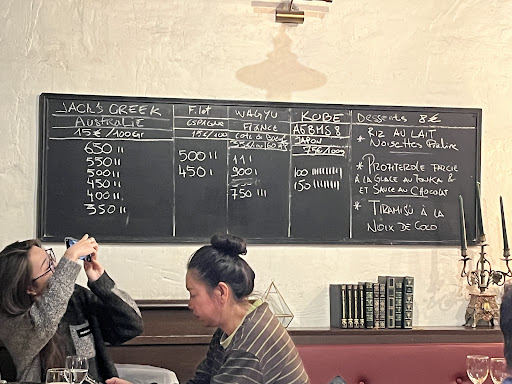 JACK'S CREEK
AUSTRALIE
15€/100gr
650 ıı
550 ıı
500 ıı
450 ıı
400 ıı
350 ıı
Filet
ESPAGNE
15€/100
500 ıı
450 ı
WAGYU
FRANCE
Cote de Boeuf
ııı
900ı
750 ııı
KOBE
A5BMS 8
JAPON
100
150
Desserts 8€
* RIZ AU LAIT
NOISETTES PRALINE
* PROFITEROLE FARCIE
À LA GLACE AU TONKA &
ET SAUCE AU CHOCOLAT
* TIRAMISÙ À LA
NOIX DE COCO